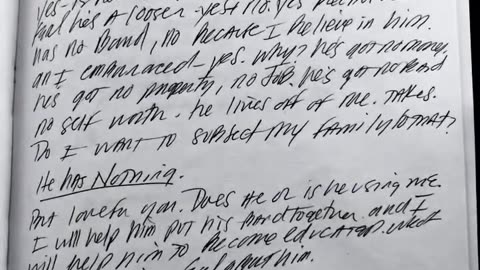 yes - is he
he's A looser - yes + no. yes
has no Band, no because I believe in him.
am I embarraced - yes. why? he's got no money,
he's got no property, no JOB. he's got no Band
no self worth - he lives off of me. TAKES.
Do I want to subject my family to that?
He has Nothing.
But loveful you. Does He or is he using me.
I will help him put his band together. and I
will help him to become educated. what
him.